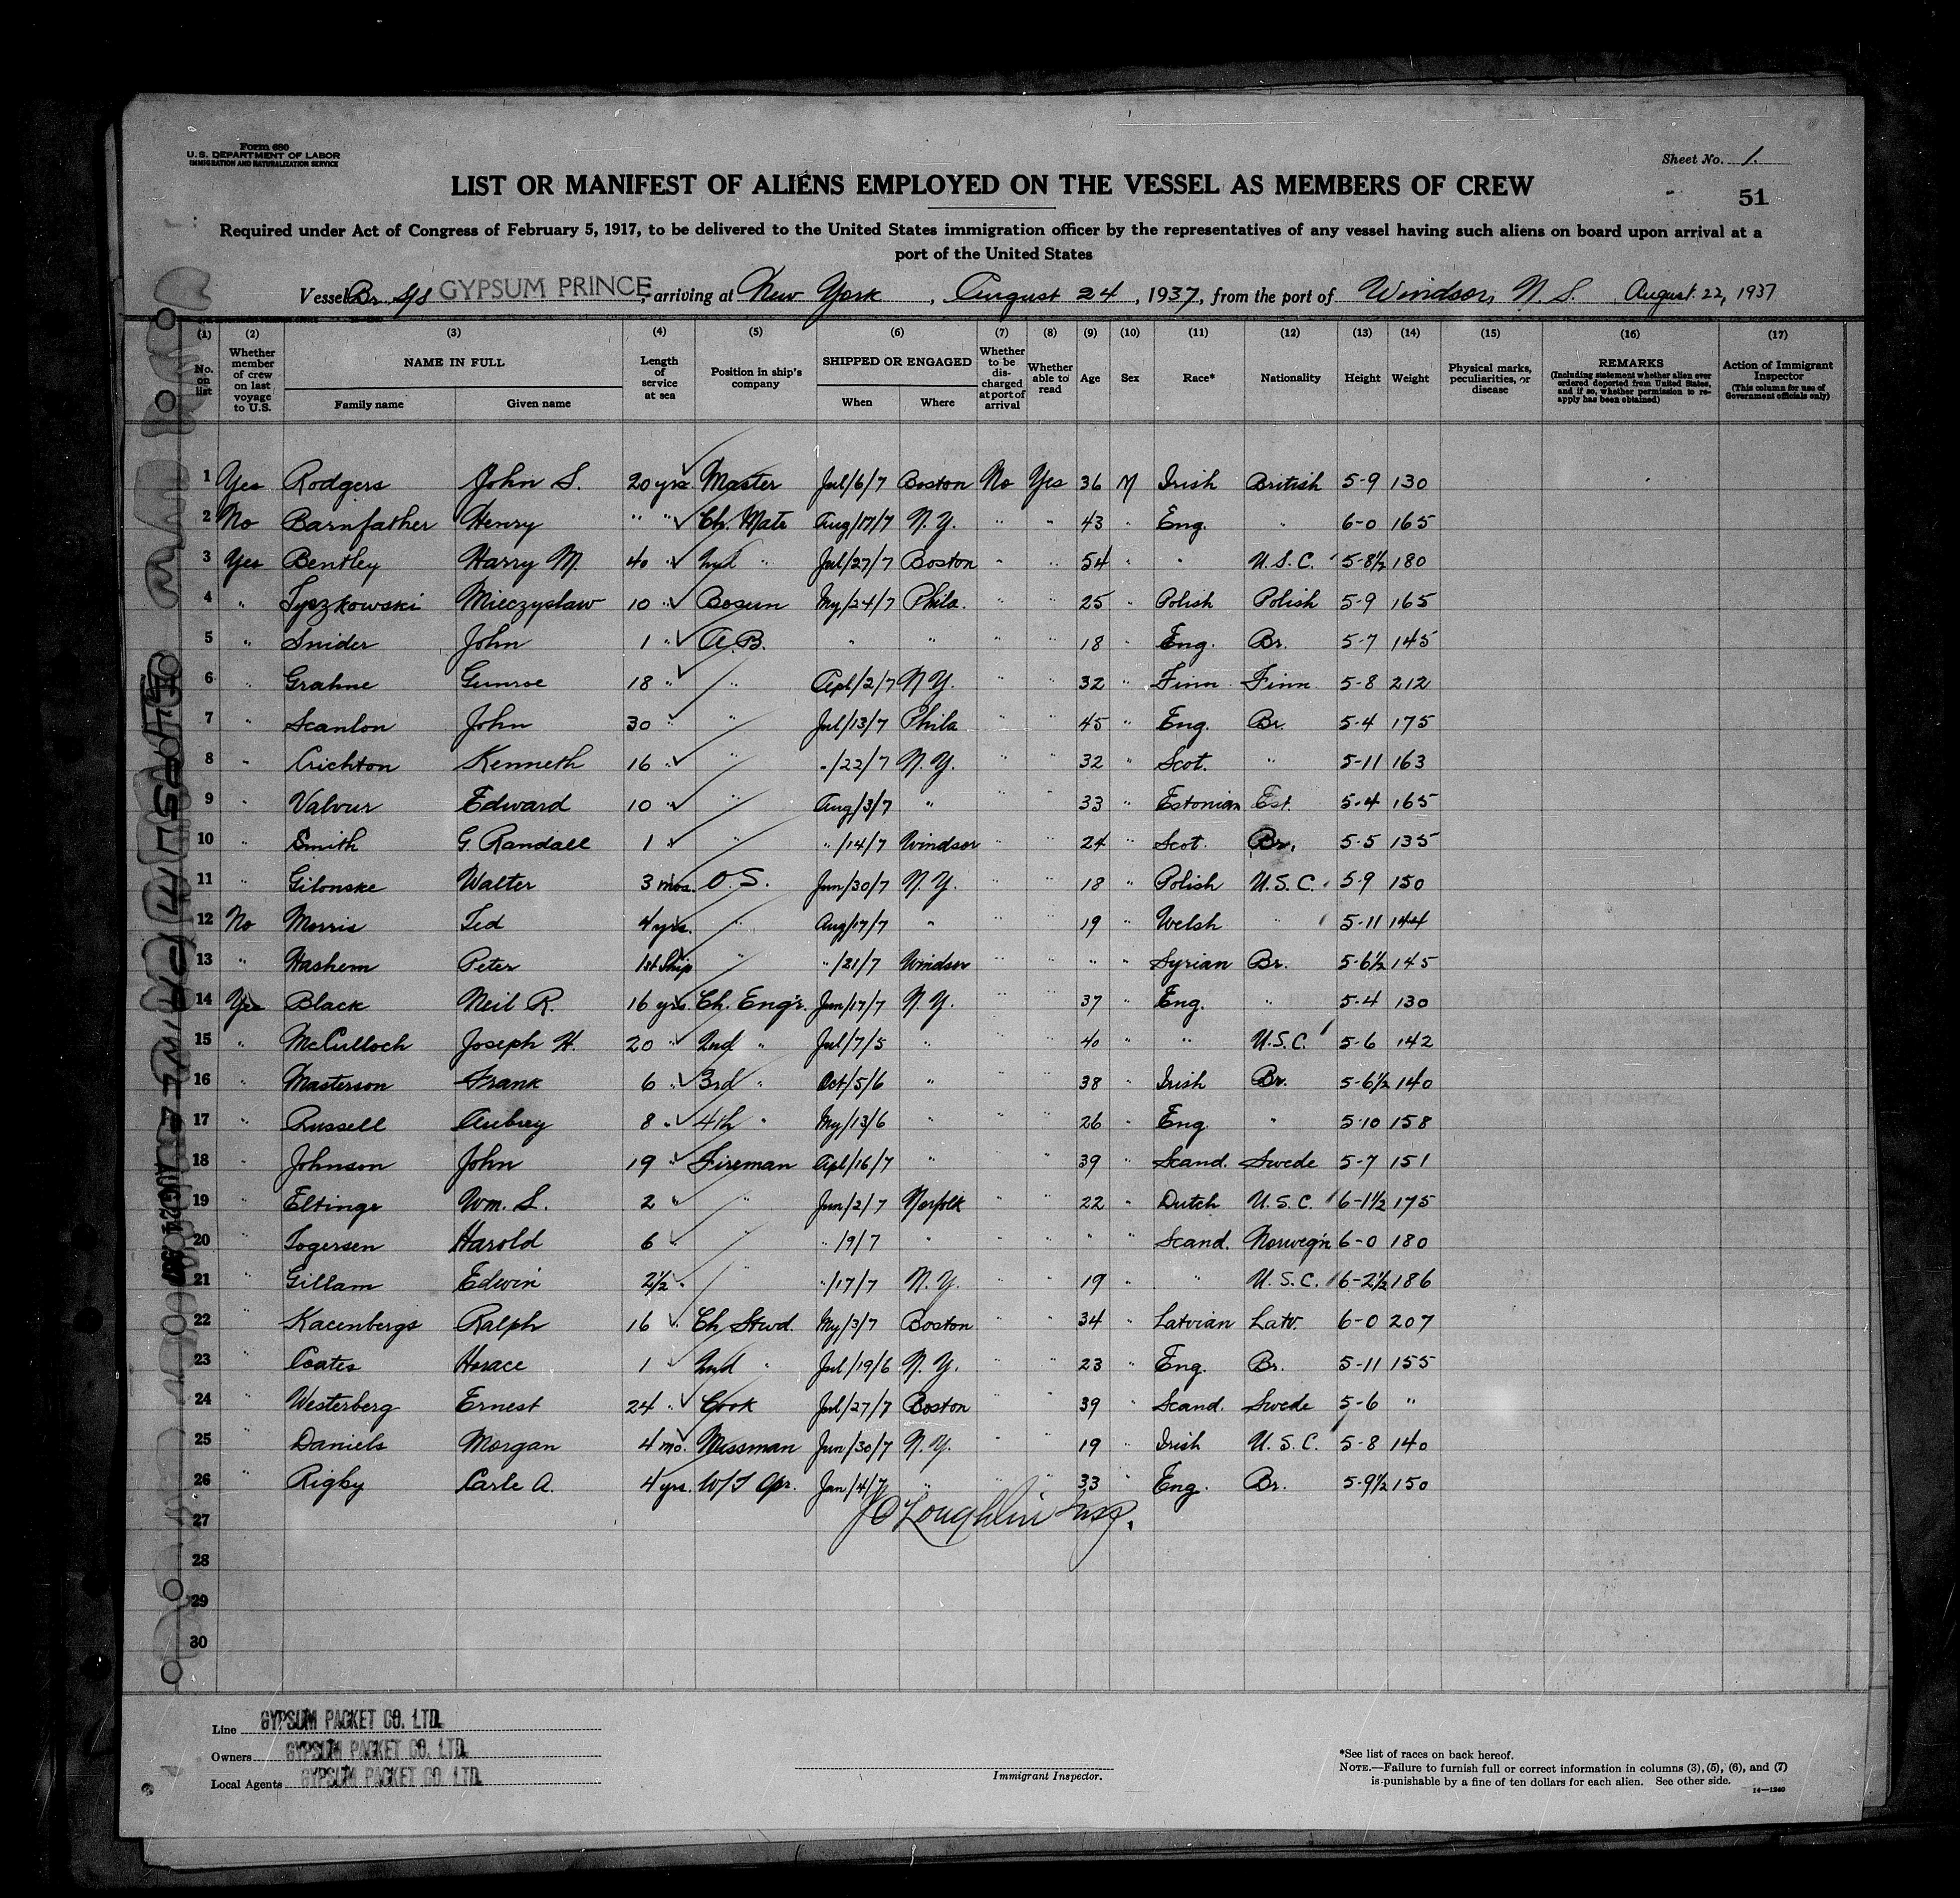 Form 680
U. S. DEPARTMENT OF LABOR
IMMIGRATION AND NATURALIZATION SERVICE
Sheet No. 1.
LIST OR MANIFEST OF ALIENS EMPLOYED ON THE VESSEL AS MEMBERS OF CREW
51
Required under Act of Congress of February 5, 1917, to be delivered to the United States immigration officer by the representatives of any vessel having such aliens on board upon arrival at a
port of the United States
Vessel Br. S/S GYPSUM PRINCE, arriving at New York, August 24, 1937, from the port of Windsor, N. S. August 22, 1937
(1) (2) (3) (4) (5) (6) (7) (8) (9) (10) (11) (12) (13) (14) (15) (16) (17)
No. on list
Whether member of crew on last voyage to U.S.
NAME IN FULL
Family name
Given name
Length of service at sea
Position in ship's company
SHIPPED OR ENGAGED
When
Where
Whether to be discharged at port of arrival
Whether able to read
Age
Sex
Race*
Nationality
Height
Weight
Physical marks, peculiarities, or disease
REMARKS
(Including statement whether alien ever ordered deported from United States, and if so, whether permission to reapply has been obtained)
Action of Immigrant Inspector
(This column for use of Government officials only)
1 Yes Rodgers John S. 20 yrs. Master Jul/6/7 Boston No Yes 36 M Irish British 5-9 130
2 No Barnfather Henry " " Ch. Mate Aug/17/7 N.Y. " " 43 " Eng. " 6-0 165
3 Yes Bentley Harry M. 40 " 2nd " Jul/27/7 Boston " " 54 " " U.S.C. 5-8½ 180
4 " Tyszkowski Mieczyslaw 10 " Bosun My/24/7 Phila. " " 25 " Polish Polish 5-9 165
5 " Snider John 1 " A.B. " " " " 18 " Eng. Br. 5-7 145
6 " Grahne Gunroe 18 " " Apl/2/7 N.Y. " " 32 " Finn Finn 5-8 212
7 " Scanlon John 30 " " Jul/13/7 Phila " " 45 " Eng. Br. 5-4 175
8 " Crichton Kenneth 16 " " "/22/7 N.Y. " " 32 " Scot. " 5-11 163
9 " Valvur Edward 10 " " Aug/3/7 " " " 33 " Estonian Est. 5-4 165
10 " Smith G. Randall 1 " " "/14/7 Windsor " " 24 " Scot. Br. 5-5 135
11 " Gilonske Walter 3 mos. O.S. Jun/30/7 N.Y. " " 18 " Polish U.S.C. 5-9 150
12 No Morris Ted 4 yrs. " Aug/17/7 " " " 19 " Welsh " 5-11 144
13 " Hashem Peter 1st Ship " "/21/7 Windsor " " " " Syrian Br. 5-6½ 145
14 Yes Black Neil R. 16 yrs. Ch. Eng'r. Jun/17/7 N.Y. " " 37 " Eng. " 5-4 130
15 " McCulloch Joseph H. 20 " 2nd " Jul/7/5 " " " 40 " " U.S.C. 5-6 142
16 " Masterson Frank 6 " 3rd " Oct/5/6 " " " 38 " Irish Br. 5-6½ 140
17 " Russell Aubrey 8 " 4th " My/13/6 " " " 26 " Eng. " 5-10 158
18 " Johnson John 19 " Fireman Apl/16/7 " " " 39 " Scand. Swede 5-7 151
19 " Eltinge Wm. S. 2 " " Jun/2/7 Norfolk " " 22 " Dutch U.S.C. 6-1½ 175
20 " Togersen Harold 6 " " "/9/7 " " " " " Scand. Norweg'n 6-0 180
21 " Gillam Edwin 2½ " " "/17/7 N.Y. " " 19 " " U.S.C. 6-2½ 186
22 " Kacenbergs Ralph 16 " Ch. Stwd. My/3/7 Boston " " 34 " Latvian Latv. 6-0 207
23 " Coates Horace 1 " 2nd " Jul/19/6 N.Y. " " 23 " Eng. Br. 5-11 155
24 " Westerberg Ernest 24 " Cook Jul/27/7 Boston " " 39 " Scand. Swede 5-6 "
25 " Daniels Morgan 4 mo. Messman Jun/30/7 N.Y. " " 19 " Irish U.S.C. 5-8 140
26 " Rigby Carle A. 4 yrs. W/T Opr. Jan/4/7 " " " 33 " Eng. Br. 5-9½ 150
27 J O'Loughlin Insp.
28
29
30
Line GYPSUM PACKET CO. LTD.
Owners GYPSUM PACKET CO. LTD.
Local Agents GYPSUM PACKET CO. LTD.
Immigrant Inspector.
*See list of races on back hereof.
NOTE.—Failure to furnish full or correct information in columns (3), (5), (6), and (7)
is punishable by a fine of ten dollars for each alien. See other side.
14—1240